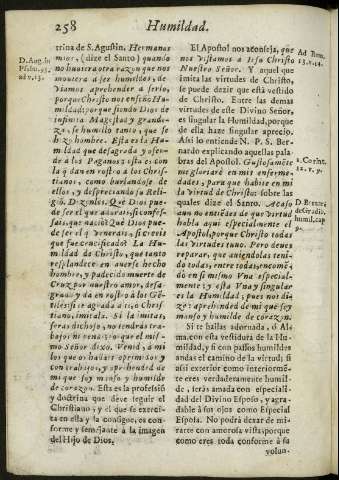 258 Humildad.
trina de S. Agustin. Hermanos
mios, (dize el Santo) quando
no huviera otra razon que nos
moviera à ser humildes, de
viamos aprehender à serlo,
porque Christo nos enseñò Hu
mildad; porque siendo Dios de
infinita Magestad y grandez
a, se humillo tanto, que se
hizo hombre. Esta es la Hu
mildad que desagrada y ofen-
de à los Paganos esta es con
la q dan en rostro à los Chris-
tianos, como burlandose de
ellos, y despreciando su Reli-
giõ. Dizenlos: Què Dios pue-
de ser el que adorais; si confes-
sais, que naciò? Què Dios pue-
de ser el q venerais, si creeis
que fue crucificado? La Hu-
mildad de Christo, que tanto
resplandece en averse hecho
hombre, y padecido muerte de
Cruz por nuestro amor, desa-
grada y da en rostro à los Gẽ-
Christi-
tiano, imitala. Si la imitas,
seràs dichoso, no tendràs tra-
bajos ni
Señor dixo. Venid, à mi
los que os hallais oprimidos y
con trabajos, y aprehended de
mi que soy manso y humilde
de corazon. Esta es la professiõ
y doctrina que deve seguir el
Christiano, y el que se exerci-
ta en esta y la consigue, es con-
forme y semejante à la imagen
del Hijo de Dios.
D. Aug. in
Psalm. 93.
ad v. 15.
El Apostol nos aconseja, que
nos vistamos à Jesu Christo
Nuestro Señor. Y aquel que
imita las virtudes de Christo,
se puede dezir que està vestido
de Christo. Entre las demas
virtudes de este Divino Señor,
es singular la Humildad, porque
de ella haze singular aprecio.
Assi lo entiende N. P. S. Ber-
nardo explicando aquellas pala-
bras del Apostol. Gustosamẽte
me gloriarè en mis enferme-
dades, para que habite en mi
la virtud de Christo: sobre las
quales dize el Santo. Acaso
aun no entièdes de que virtud
habla aqui especialmente el
Apostol, porque Christo todas
las virtudes tuvo. Pero deves
reparar, que aviendolas teni-
do todas, entre todas, encomẽ-
dò en si mismo Vna especial-
mente; y esta Vna y singular
es la Humildad, pues nos di-
ze: aprehended de mi que soy
manso y humilde de corazon.
Si te hallas adornada, ò Al-
ma con esta vestidura de la Hu-
mildad, y si con passos humildes
andas el camino de la virtud; si
assi exterior como interiormẽ-
te eres verdaderamente humil-
de, seràs amada con especiali-
dad del Divino Esposo, y agra-
dable à sus ojos como Especial
Esposa. No podrà dexar de mi-
rarte con amorosa vista, porque
como eres toda conforme à su
volun-
Ad Rom.
13. v. 14.
2. Corint.
12. v. 9.
D. Bernar.
de Gradib.
humil. cap
9.